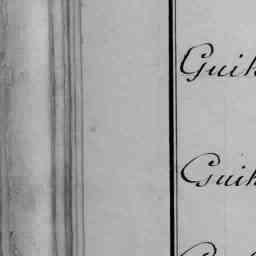 Guik
Guik